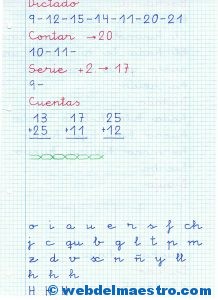 Dictado
9-12-15-14-11-20-21
Contar → 20
10-11-
Serie +2 → 17.
9-
Cuentas
13 17 25
+25 +11 +12
o i a u e r s f ch
j c qu b g l t p m
z d v x n ñ y ll
h h h
H H H
© webdelmaestro.com